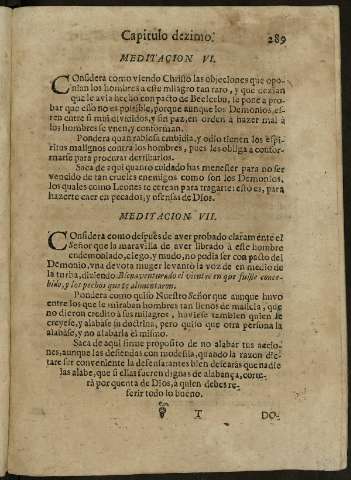 Capitulo dezimo.
289
MEDITACION VI.
COnsidera como viendo Christo las objeciones que opo-
nian los hombres a este milagro tan raro, y que dezian
que le avia hecho con pacto de Beelcebu, se pone a pro-
bar que esso no es posible, porque aunque los Demonios, es-
ten entre si mui divididos, y sin paz, en orden à hazer mal à
los hombres se vnen, y conforman.
Pondera quan rabiosa embidia, y odio tienen los Espi-
ritus malignos contra los hombres, pues les obliga a confor-
marse para procurar derribarlos.
Saca de aqui quanto cuidado has menester para no ser
vencido de tan crueles enemigos como son los Demonios,
los quales como Leones te cercan para tragarte: esto es, para
hazerte caer en pecados, y ofensas de Dios.
MEDITACION VII.
COnsidera como despues de aver probado claramente el
Señor que la maravilla de aver librado à este hombre
endemoniado, ciego, y mudo, no podia ser con pacto del
Demonio, vna devota muger levantò la voz de en medio de
la turba, diziendo Bienaventurado el vientre en que fuiste conce-
bido, y los pechos que te alimentaron.
Pondera como quiso Nuestro Señor que aunque huvo
entre los que le miraban hombres tan llenos de malicia, que
no dieron credito à sus milagros, huviese tambien quien le
creyese, y alabase su doctrina, pero quiso que otra persona la
alabáse, y no alabarla el mismo.
Saca de aqui firme proposito de no alabar tus accio-
nes, aunque las defiendas con modestia, quando la razon dic-
tare ser conveniente la defensa: antes bien desearás que nadie
las alabe, que si ellas fueren dignas de alabança, corre-
rà por quenta de Dios, à quien debes re-
ferir todo lo bueno.
T
DO-